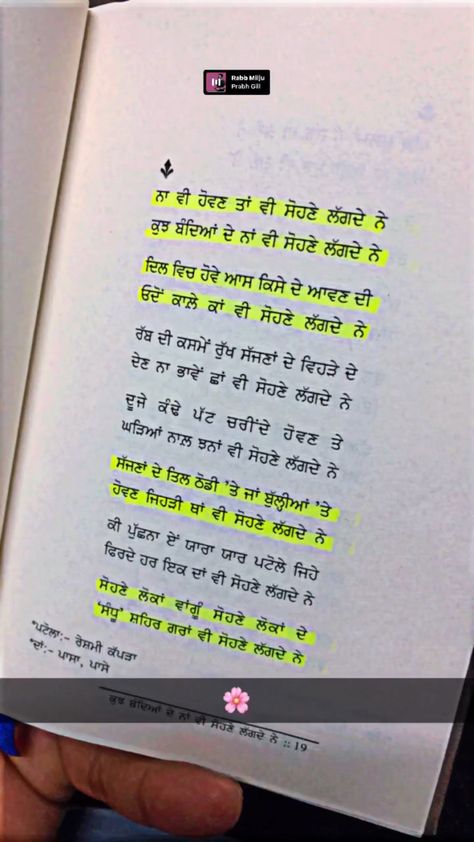 Rabb Milju
Prabh Gill
ਨਾ ਵੀ ਹੋਵਣ ਤਾਂ ਵੀ ਸੋਹਣੇ ਲੱਗਦੇ ਨੇ
ਕੁਝ ਬੰਦਿਆਂ ਦੇ ਨਾਂ ਵੀ ਸੋਹਣੇ ਲੱਗਦੇ ਨੇ
ਦਿਲ ਵਿਚ ਹੋਵੇ ਆਸ ਕਿਸੇ ਦੇ ਆਵਣ ਦੀ
ਓਦੋਂ ਕਾਲੇ ਕਾਂ ਵੀ ਸੋਹਣੇ ਲੱਗਦੇ ਨੇ
ਰੱਬ ਦੀ ਕਸਮੇਂ ਰੁੱਖ ਸੱਜਣਾਂ ਦੇ ਵਿਹੜੇ ਦੇ
ਦੇਣ ਨਾ ਭਾਵੇਂ ਛਾਂ ਵੀ ਸੋਹਣੇ ਲੱਗਦੇ ਨੇ
ਦੂਜੇ ਕੰਢੇ ਪੱਟ ਚਰੀਂਦੇ ਹੋਵਣ ਤੇ
ਘੜਿਆਂ ਨਾਲ਼ ਝਨਾਂ ਵੀ ਸੋਹਣੇ ਲੱਗਦੇ ਨੇ
ਸੱਜਣਾਂ ਦੇ ਤਿਲ ਠੋਡੀ 'ਤੇ ਜਾਂ ਬੁੱਲ੍ਹੀਆਂ 'ਤੇ
ਹੋਵਣ ਜਿਹੜੀ ਥਾਂ ਵੀ ਸੋਹਣੇ ਲੱਗਦੇ ਨੇ
ਕੀ ਪੁੱਛਨਾ ਏਂ ਯਾਰਾ ਯਾਰ ਪਟੋਲੇ ਜਿਹੇ
ਫਿਰਦੇ ਹਰ ਇਕ ਦਾਂ ਵੀ ਸੋਹਣੇ ਲੱਗਦੇ ਨੇ
ਸੋਹਣੇ ਲੋਕਾਂ ਵਾਂਗੂੰ ਸੋਹਣੇ ਲੋਕਾਂ ਦੇ
'ਸੰਧੂ' ਸ਼ਹਿਰ ਗਰਾਂ ਵੀ ਸੋਹਣੇ ਲੱਗਦੇ ਨੇ
*ਪਟੋਲਾ:- ਰੇਸ਼ਮੀ ਕੱਪੜਾ
*ਦਾਂ:- ਪਾਸਾ, ਪਾਸੇ
ਕੁਝ ਬੰਦਿਆਂ ਦੇ ਨਾਂ ਵੀ ਸੋਹਣੇ ਲੱਗਦੇ ਨੇ :: 19